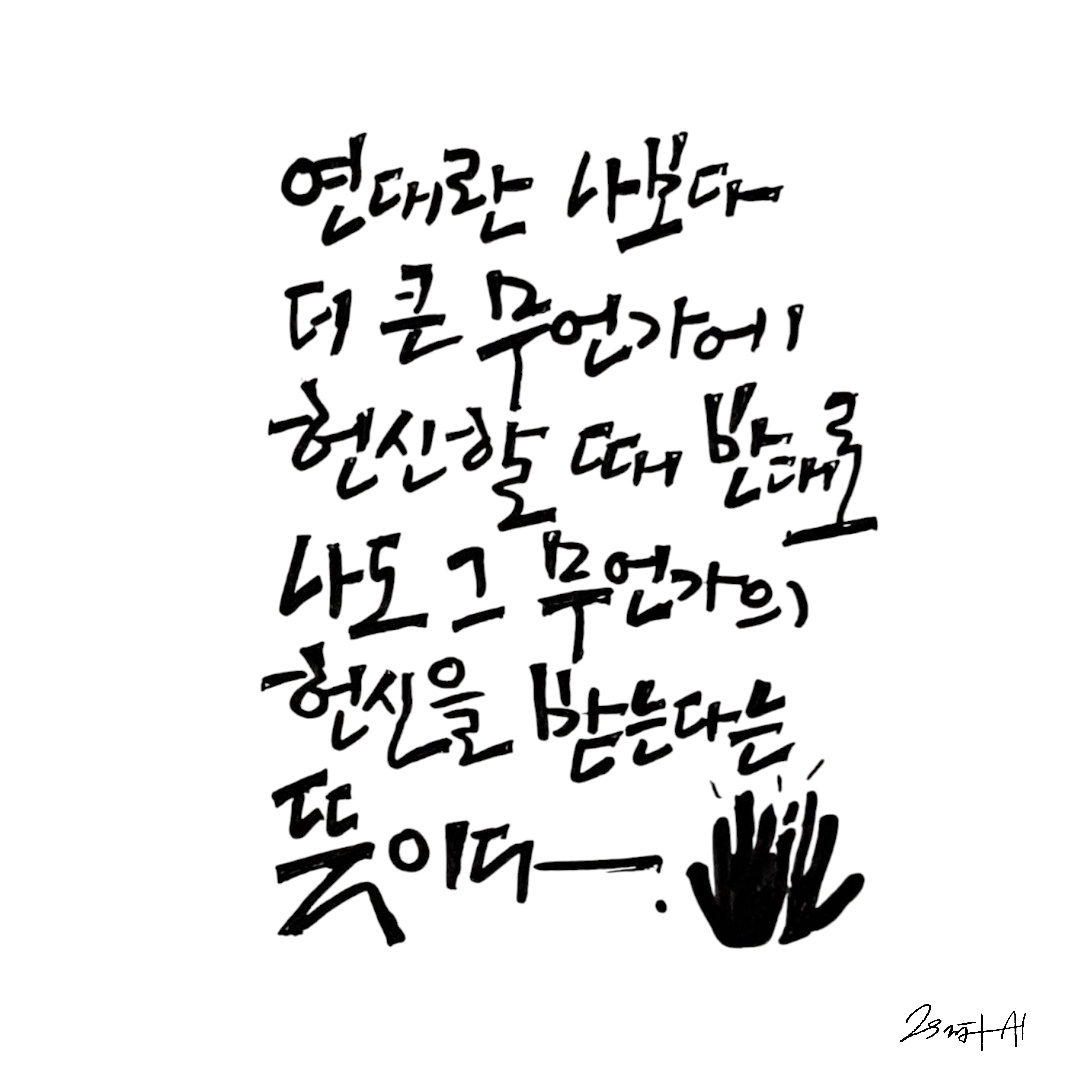 연대란 나보다
더 큰 무언가에
헌신할 때 반대로
나도 그 무언가의
헌신을 받는다는
뜻이다.